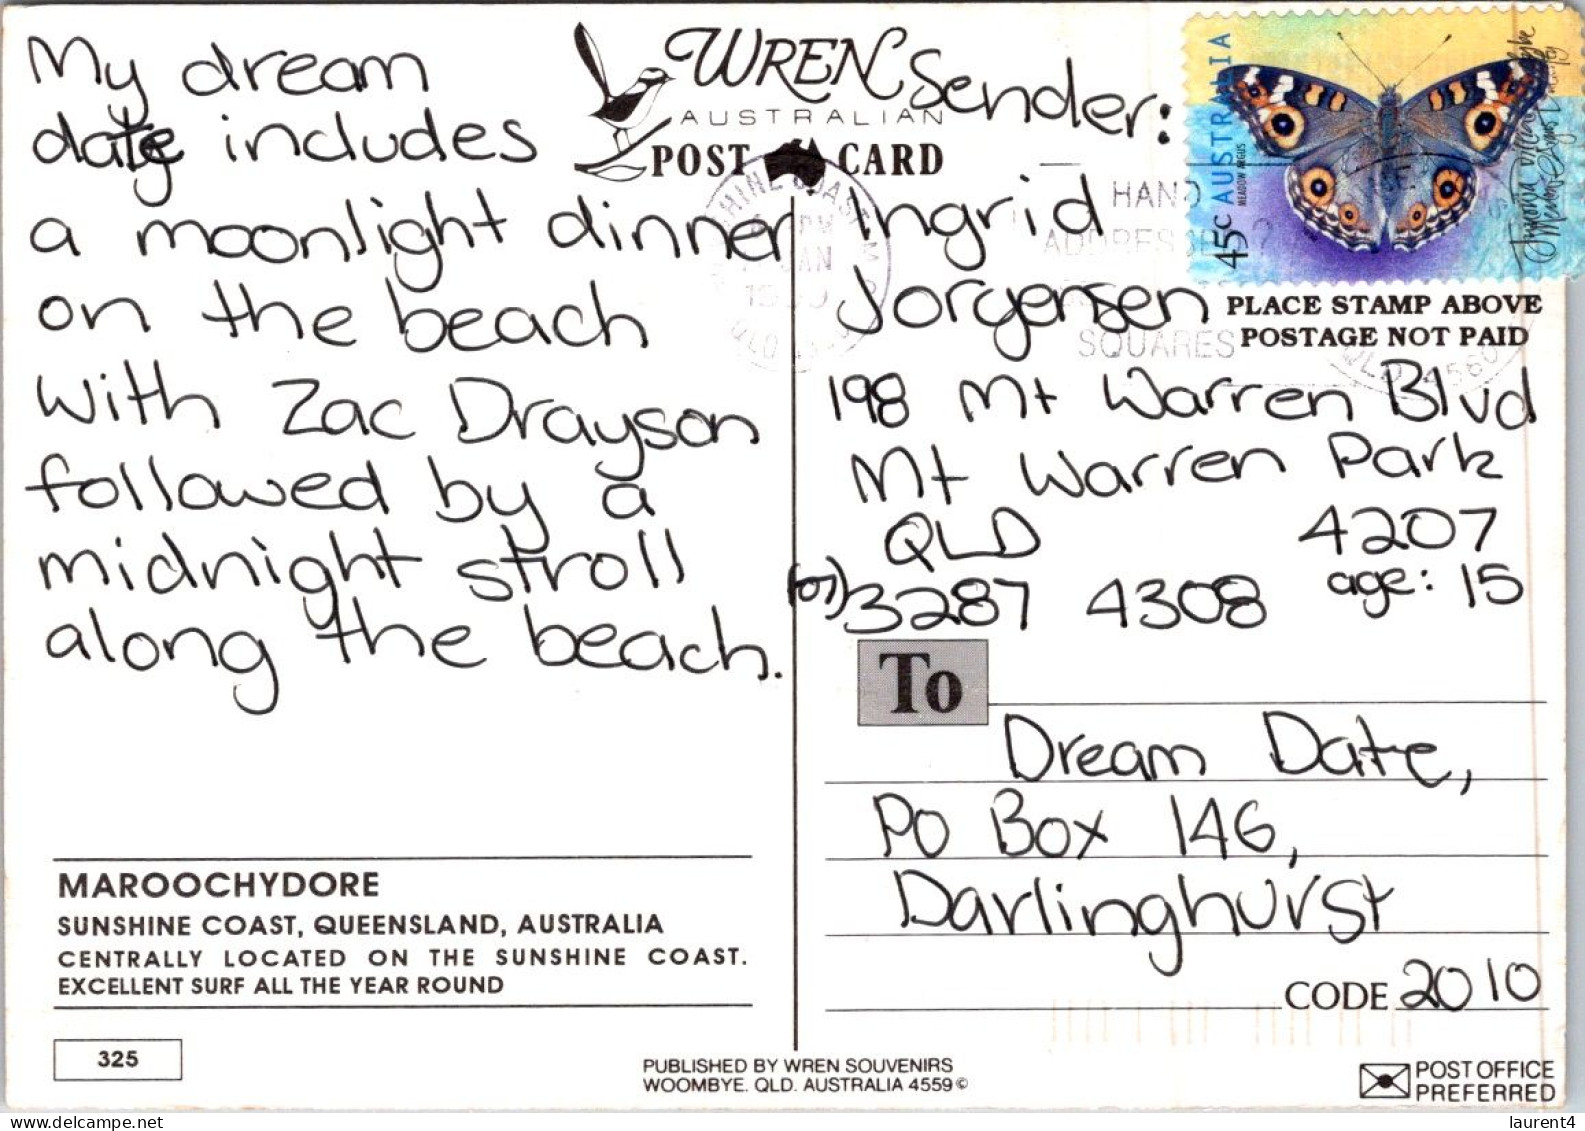 My dream
date includes
a moonlight dinner
on the beach
with Zac Drayson
followed by a
midnight stroll
along the beach.
WREN
AUSTRALIAN
POST CARD
Sender:
Ingrid
Jorgensen
198 Mt Warren Blvd
Mt Warren Park
QLD 4207
(07) 3287 4308 age: 15
AUSTRALIA
45c
MEADOW ARGUS
HAND
ADDRESSING?
SQUARES
JAN
QLD 4560
PLACE STAMP ABOVE
POSTAGE NOT PAID
To
Dream Date,
PO Box 146,
Darlinghurst
CODE 2010
MAROOCHYDORE
SUNSHINE COAST, QUEENSLAND, AUSTRALIA
CENTRALLY LOCATED ON THE SUNSHINE COAST.
EXCELLENT SURF ALL THE YEAR ROUND
325
PUBLISHED BY WREN SOUVENIRS
WOOMBYE. QLD. AUSTRALIA 4559 ©
POST OFFICE
PREFERRED
laurent4